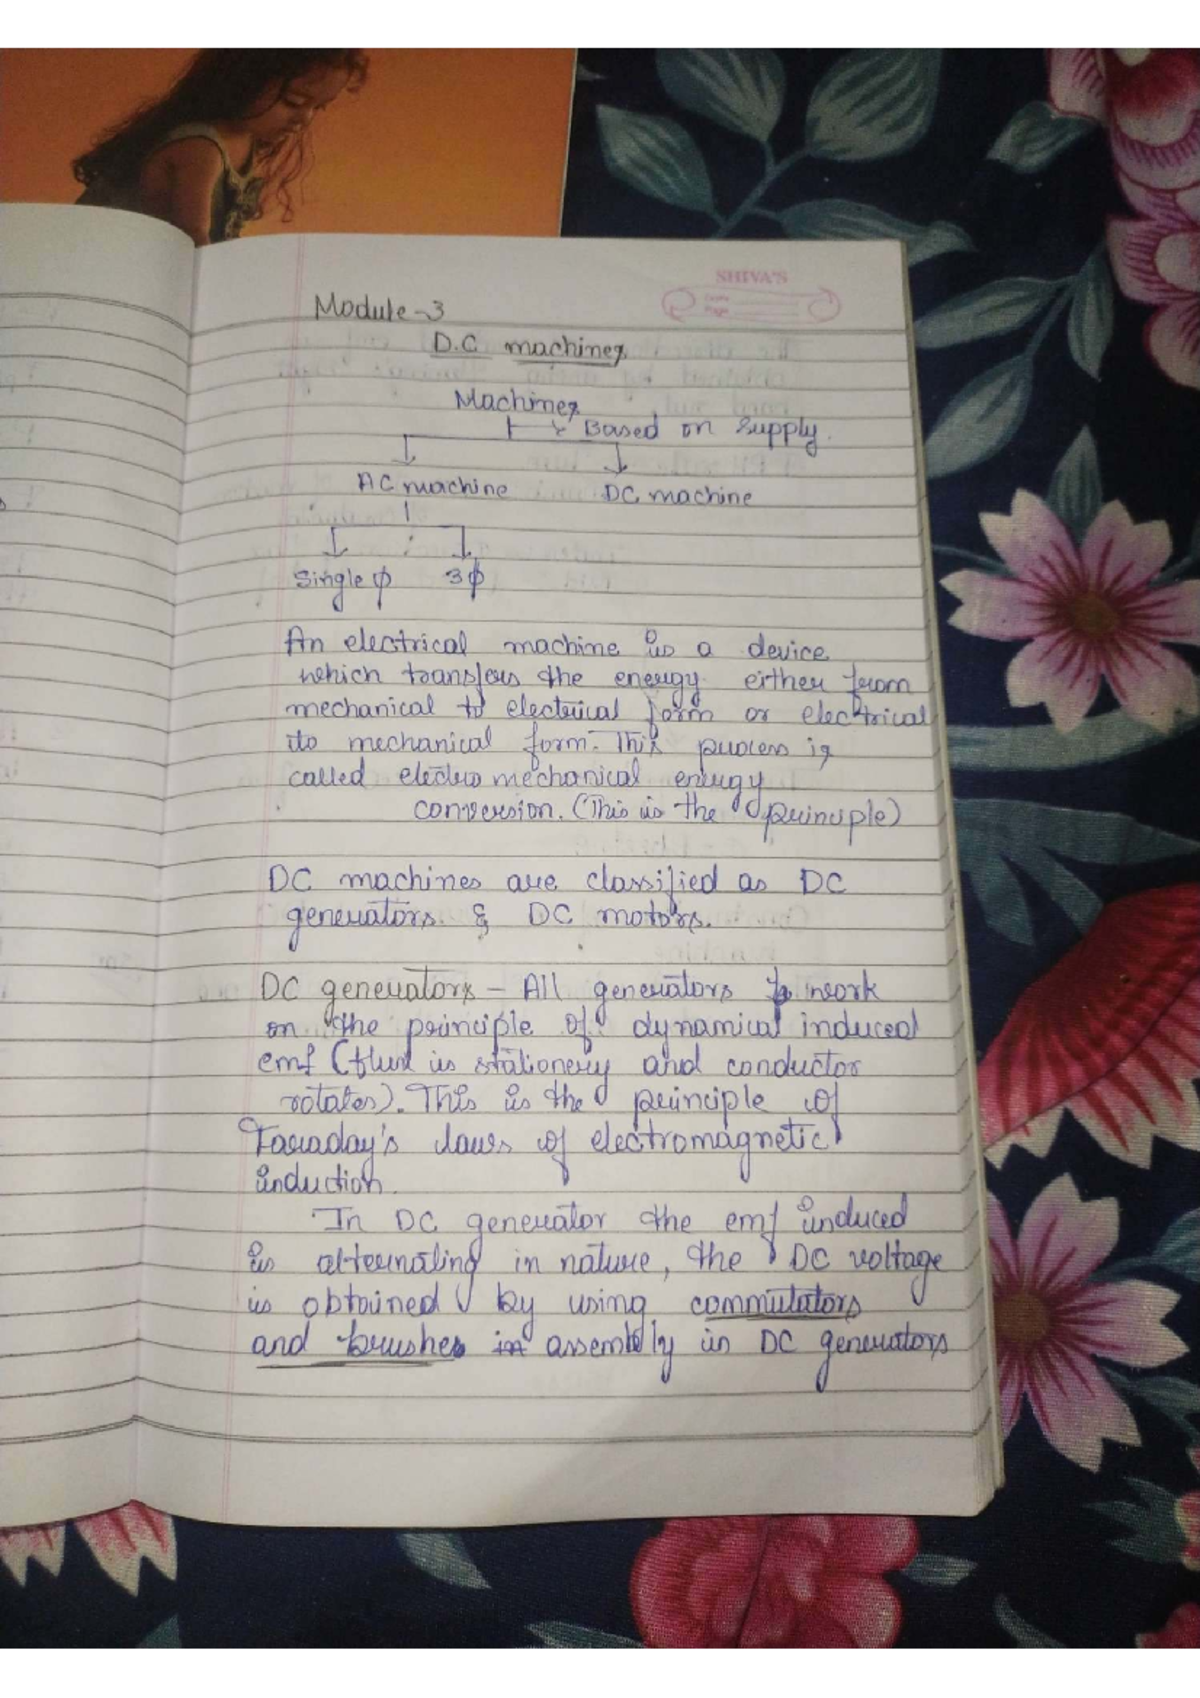 SHIVA'S
Date
Page
Module-3
D.C machines
Machines
Based on supply.
AC machine DC machine
Single ϕ 3ϕ
An electrical machine is a device
which transfers the energy either from
mechanical to electrical form or electrical
to mechanical form. This process is
called electro mechanical energy
conversion. (This is the principle)
DC machines are classified as DC
generators & DC motors.
DC generators - All generators work
on the principle of dynamical induced
emf (flux is stationery and conductor
rotates). This is the principle of
Faraday's laws of electromagnetic
induction.
In DC generator the emf induced
is alternating in nature, the DC voltage
is obtained by using commutators
and brushes in assembly in DC generators